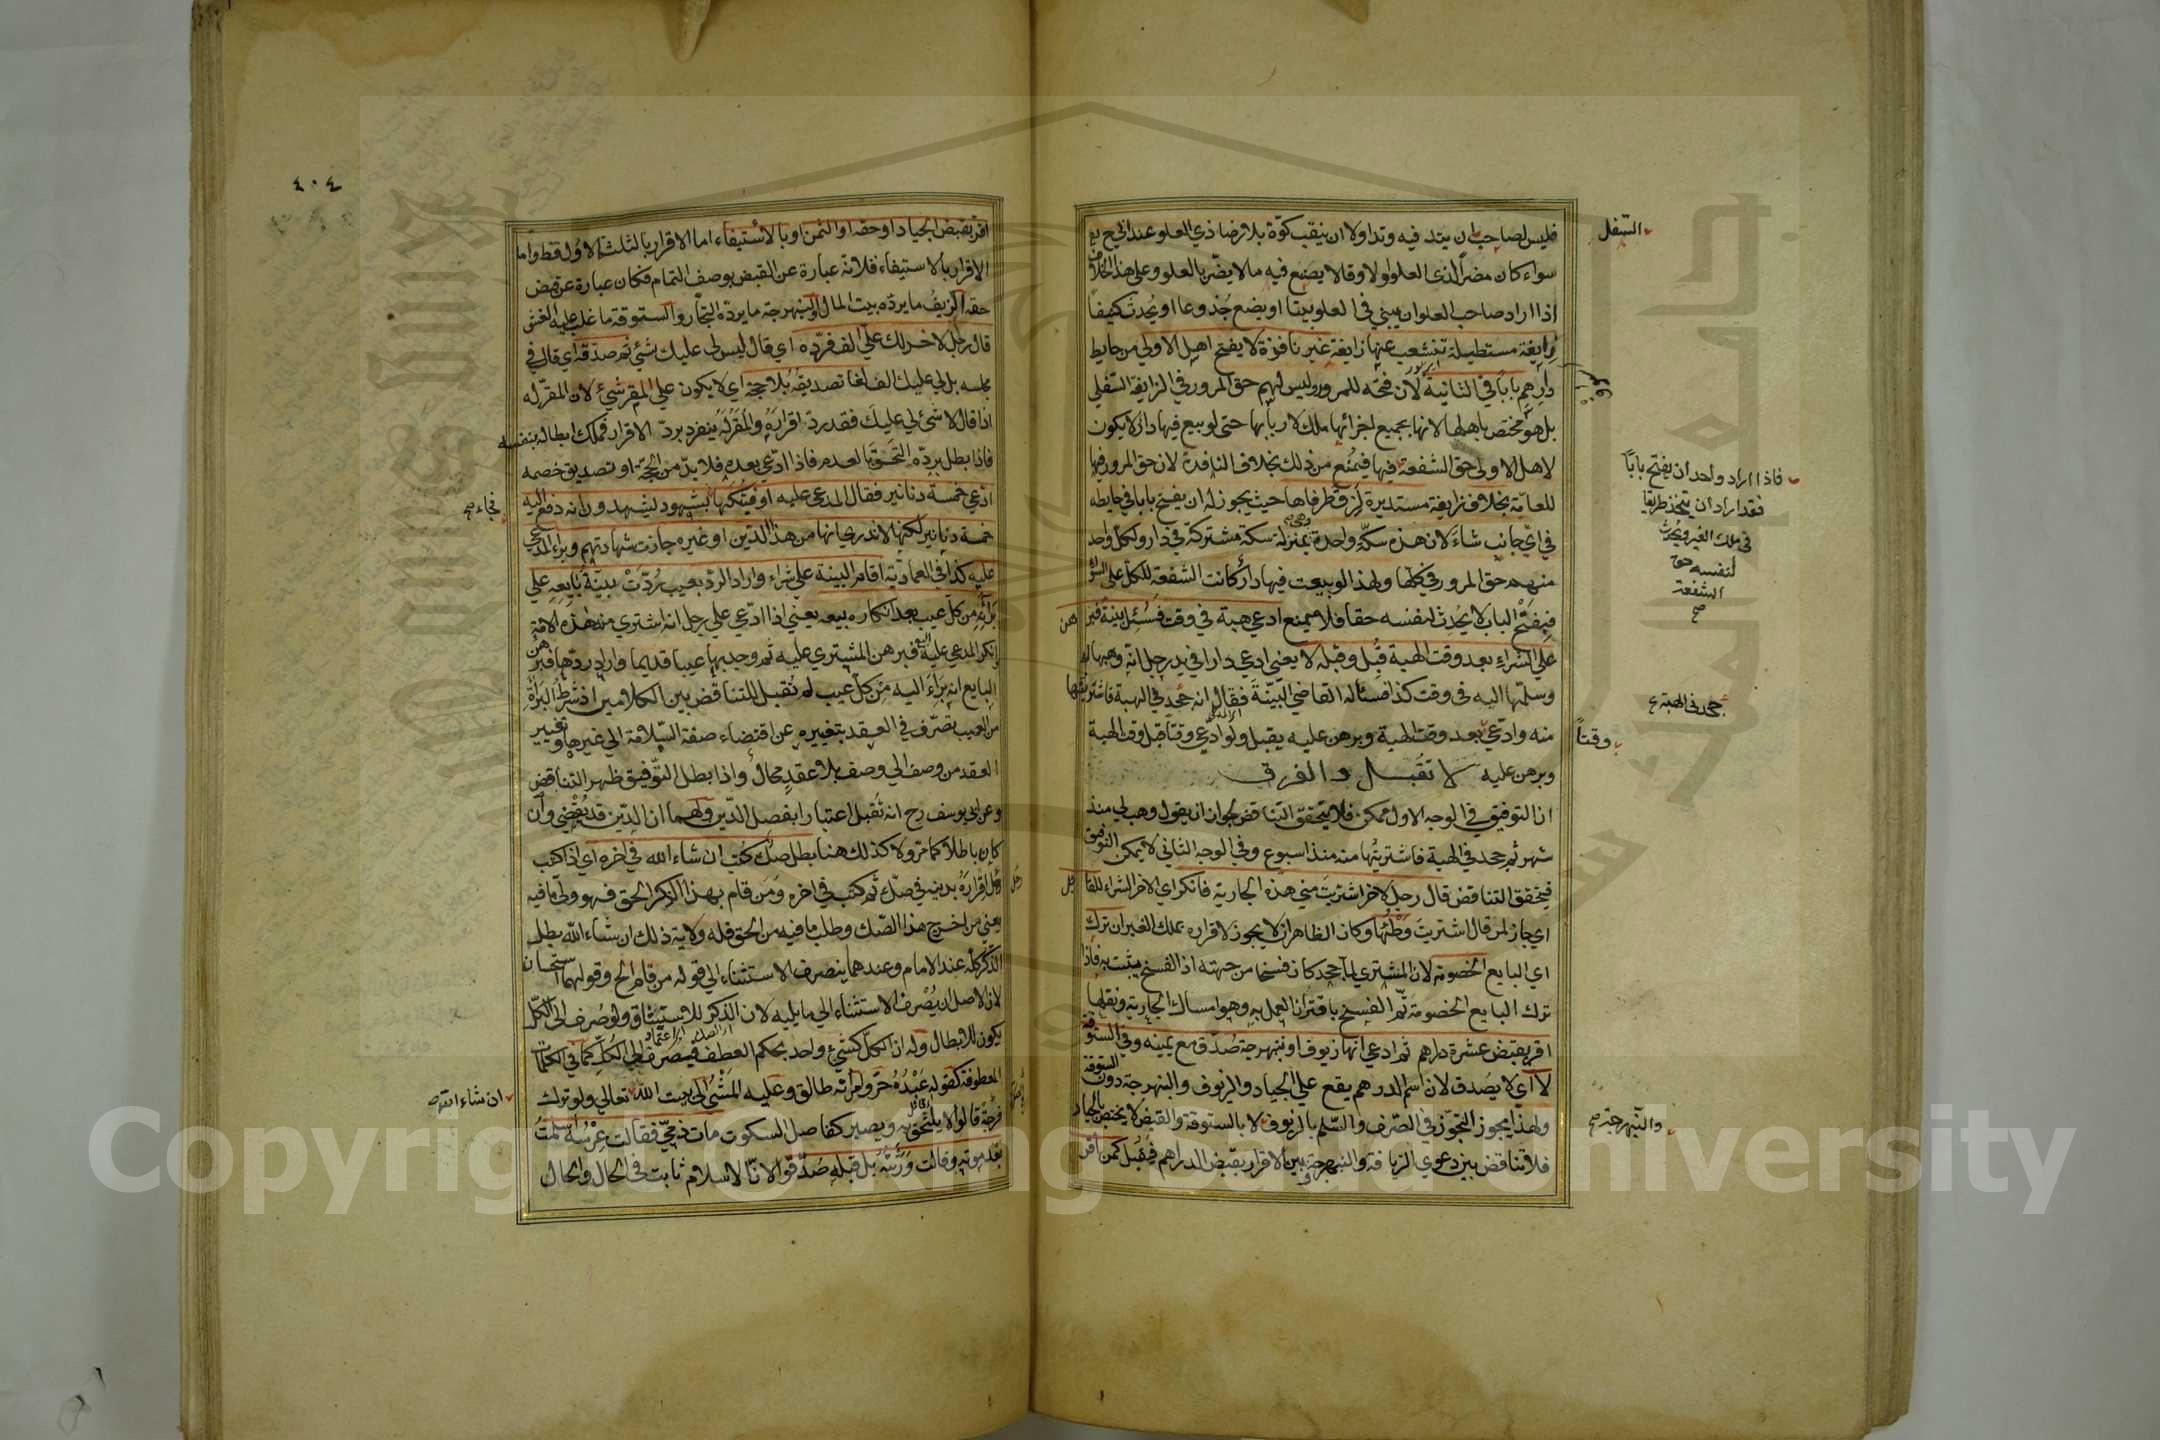 السفل
فليس لصاحب ان يتد فيه وتدا ولا ان ينقب كوّة بلا رضا ذي العلو عند ابي ح رح
سواء كان مضراً لذي العلو اولا وقالا يصنع فيه ما لا يضّر بالعلو وعلى هذا الخلاف
اذا اراد صاحب العلو ان يبني في العلو بيتا او يضع جُذوعا او يُحدث كنيفاً
زايغة مستطيلة تنشعب عنها زايغة غير نافذة لا يفتح اهل الاولى من حايط
دارهم باباً في الثانية لأن فتحه للمرور وليس لهم حق المرور في الزايغة السفلى
بل هو مختص باهلها لانها بجميع اجزائها ملك لاربابها حتى لو بيع فيها دار لا يكون
لاهل الاولى حق الشفعة فيها فيمُنع من ذلك بخلاف النافذة لان حق المرور فيها
للعامّة بخلاف زايغة مستديرة لزق طرفاها حيث يجوز له ان يفتح بابا في حايطه
في ايّ جانب شاءَ لان هذه سكّة واحدة بمنزلة سكة مشتركة في دار ولكل واحد
منهم حق المرور في كلها ولهذا لو بيعت فيها دار كانت الشفعة للكل على السواء
فبِفَتْح الباب لا يُحدِث لنفسه حقا فلا يمنع ادعي هبة في وقت فسُئل بينة فبرهن
على الشراءِ بعد وقت الهبة قُبِل وقبله لا يعني ادعى دارا في يد رجل انه وهبها له
وسلّمها اليه في وقت كذا فسئاله القاضي البيّنةَ فقال انه جحد في الهبة فاشتريتها
منه وادّعى بعد وقت الهبة وبرهن عليه يقبل ولو ادّعى وقتاً قبل وقت الهبة
وبرهن عليه لا تقبل والفرق
ان التوفيق في الوجه الاول ممكن فلا يتحقق التناقض لجواز ان يقول وهب لي منذ
شهر ثم جحد في الهبة فاشتريتُها منه منذ اسبوع وفي الوجه الثاني لا يمكن التوفيق
فيتحقق التناقض قال رجل لاخر اشتريتَ مني هذه الجارية فانكر اي الاخر الشراء للقائل
اي جاز لمن قال اشتريتَ وَطْئُها وكان الظاهر ان لا يجوز لاقراره بملك الغير ان ترك
اي البايع الخصومة لان المشتري لما جحد كان فسخا من جهته اذ الفسخ يثبت به فاذا
ترك البايع الخصومة تمّ الفسخ باقتران العمل به وهو امساك الجارية ونقلها
اقر بقبض عشرة دراهم ثم ادعى انها زيوف او نبهرجة صُدّق مع يمينه وفي الستوقة
لا اي لا يصَدق لان اسم الدرهم يقع على الجياد والزيوف والنبهرجة دون الستوقة
ولهذا يجوز التجوّز في الصّرف والسّلم بالزيوف لا بالستوقة والقبض لا يختص بالجياد
فلا تناقض بين دعوى الزيافة والنبهرجة وبين الاقرار بقبض الدراهم فيُقبل كمن اقر
فاذا اراد واحد ان يفتح باباً
فقد اراد ان يتخذ طريقا
في ملك الغير ويُحدث
لنفسه حق
الشفعة
صح
جحدني الهبة
وقتاً
والنّبهرجة صح
٤٠٤
اقر بقبض الجياد او حقه او الثمن او بالاستيفاء اما الاقرار بالثلثة الاوُل فقط واما
الاقرار بالاستيفاء فلانه عبارة عن القبض بوصف التمام فكان عبارة عن قبض
حقه الزيفُ ما يردّه بيت المال والنبهرجة ما يردّه التجّار والستوقة ما غلب عليه الغش
قال رجل لاخر لك عليّ الف فردّه اي قال ليس لي عليك شئ ثم صدّقه اي قال في
مجلسه بل لي عليك الف لغا تصديقُهُ بلا حجة اي لا يكون على المقر شئ لان المقرّ له
اذا قال لا شئ لي عليكَ فقد ردّ اقرارَهُ والمُقَرُّ له ينفرد بردّ الاقرار فملك ابطاله بنفسه
فاذا بطل بردّه التحق بالعدم فاذا ادّعى بعده فلا بدّ من الحجة او تصديق خصمه
ادّعى خمسة دنانير فقال المدعى عليه اوفيتُكَها بشهود ليشهدون انه دفع اليه
خمسة دنانير لكنها لا ندري انها من هذا الدّين او غيره جازت شهادتهم وبراءِ المدعى
عليه كذا في العماديّة اقام البينة على شراء واراد الردّ بعيب رُدّتْ بينّةُ بايعه على
بَرائِهِ من كل عيب بعد انكاره بيعه يعني اذا ادّعى على رجل انه اشترى منه هذه الامة
وانكر المدعى عليه البيع فبرهن المشتري عليه ثم وجد بها عيبا قديما واراد ردّها فبرهن
البايع انه بَراءَ اليه مِن كلّ عيب لم تُقبل للتناقض بين الكلامين اذ شرط البراءة
من العيب تصّرف في العقد بتغييره عن اقتضاء صفة السّلامة الى غيرها وتغيير
العقد من وصف الى وصف بلا عقدٍ محال واذا بطل التوّفيق ظهر التناقض
وعن ابي يوسف رح انه تُقبل اعتبارا بفصل الدّين ولهما ان الدّين قد يُقْضى وأن
كان باطلا كما مرّ ولا كذلك هنا بطل صكٌ كُتِب ان شاء الله في اخره اي اذا كتب
رجل اِقرارَهُ بدينه في صكّ ثم كتب في اخره ومَن قام بهذا الذكر الحق فهو ولىّ ما فيه
يعني من اخرج هذا الصّك وطلب ما فيه من الحق فله ولاية ذلك ان شاء الله بطل
الذكر كلّه عند الامام وعندهما ينصرف الاستثناء الى قوله من قام الخ وقولهما استحسان
لان الاصل ان يُصْرف الاستثناء الى ما يليه لان الذكر للاستيثاق ولو صُرف الى الكلّ
يكون للابطال وله ان الكلّ كشئ واحد بحكم العطف فيصرف الى الكلّ كما في الكلمات
المعطوفة كقوله عَبْدُهُ حرّ وامراته طالق وعليه المَشْىُ الى بيت الله تعالى ولو ترك
فُرجة قالوا لا يلتحق به ويصير كفاصل السكوت مات ذميّ فقالت عِرْسُهُ اسلمتُ
بعد موته وقالت وَرَثَتُهُ بل قبله صُدّقوا لان الاسلام ثابت في الحال والحال
فجاء صح
ان شاء الله صح
Copyright © King Saud University